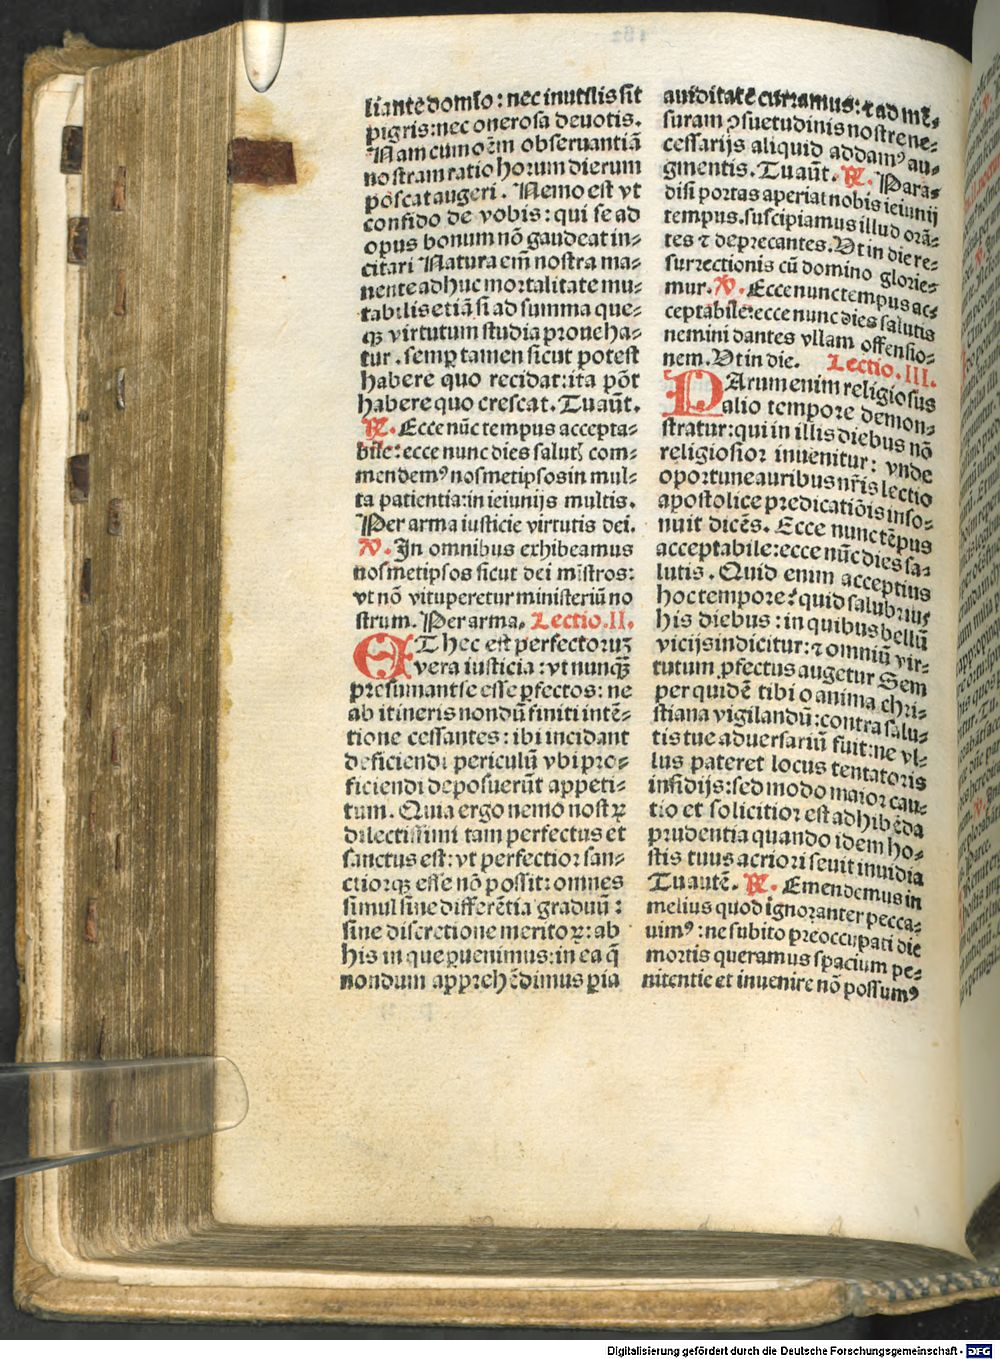 liante domĩo : nec inutilis sit
pigris: nec onerosa deuotis.
Nam cum oẽm obseruantiã
nostram ratio horum dierum
poscat augeri . Nemo est vt
confido de vobis : qui se ad
opus bonum nõ gaudeat in⸗
citari Natura eĩ nostra ma⸗
nente adhuc mortalitate mu⸗
tabilis etiã si ad summa que⸗
qꝫ virtutum studia proueha⸗
tur . semꝑ tamen sicut potest
habere quo recidat: ita põt
habere quo crescat. Tu aũt.
℟. Ecce nũc tempus accepta⸗
bile: ecce nunc dies salutꝭ com⸗
mendemꝰ nosmetipsos in mul⸗
ta patientia: in ieiunijs multis.
Per arma iusticie virtutis dei.
℣. In omnibus exhibeamus
nosmetipsos sicut dei mĩstros:
vt nõ vituperetur ministeriũ no
strum. Per arma. Lectio .II.
ET hec est perfectoruꝫ
vera iusticia : vt nunqꝫ̃
presumant se esse ꝑfectos: ne
ab itineris nondũ finiti intẽ⸗
tione cessantes : ibi incidant
deficiendi periculũ vbi pro⸗
ficiendi deposuerũt appeti⸗
tum. Quia ergo nemo nostꝝ
dilectissimi tam perfectus et
sanctus est: vt perfectior san⸗
ctiorqꝫ esse nõ possit: omnes
simul sine differẽtia graduũ :
sine discretione meritoꝝ: ab
his in que ꝑuenimus: in ea q̃
nondum apprehẽdimus pia
auiditate curramus: ⁊ ad mẽ⸗
suram ꝯsuetudinis nostre ne⸗
cessarijs aliquid addamꝰ au⸗
gmentis. Tu aũt. ℟. Para⸗
disi portas aperiat nobis ieiunij
tempus. suscipiamus illud orã⸗
tes ⁊ deprecantes. Vt in die re⸗
surrectionis cũ domino glorie⸗
mur. ℣. Ecce nunc tempus ac⸗
ceptabile: ecce nunc dies salutis
nemini dantes vllam offensio⸗
nem. Vt in die. Lectio .III.
PArum enim religiosus
alio tempore demon⸗
stratur: qui in illis diebus nõ
religiosior inuenitur: vnde
oportune auribus nr̃is lectio
apostolice predicatiõis inso⸗
nuit dicẽs. Ecce nunc tẽpus
acceptabile: ecce nũc dies sa⸗
lutis . Quid enim acceptius
hoc tempore ? quid salubrius
his diebus : in quibus bellũ
vicijs indicitur: ⁊ omniũ vir⸗
tutum ꝓfectus augetur Sem
per quidẽ tibi o anima chri⸗
stiana vigilandũ : contra salu⸗
tis tue aduersariũ fuit: ne vl⸗
lus pateret locus tentatoris
insidijs: sed modo maior cau⸗
tio et solicitior est adhibẽda
prudentia quando idem ho⸗
stis tuus acriori seuit inuidia
Tu autẽ. ℟. Emendemus in
melius quod ignoranter pecca⸗
uimꝰ : ne subito preoccupati die
mortis queramus spacium pe⸗
nitentie et inuenire nõ possumꝰ
Digitalisierung gefördert durch die Deutsche Forschungsgemeinschaft - DFG